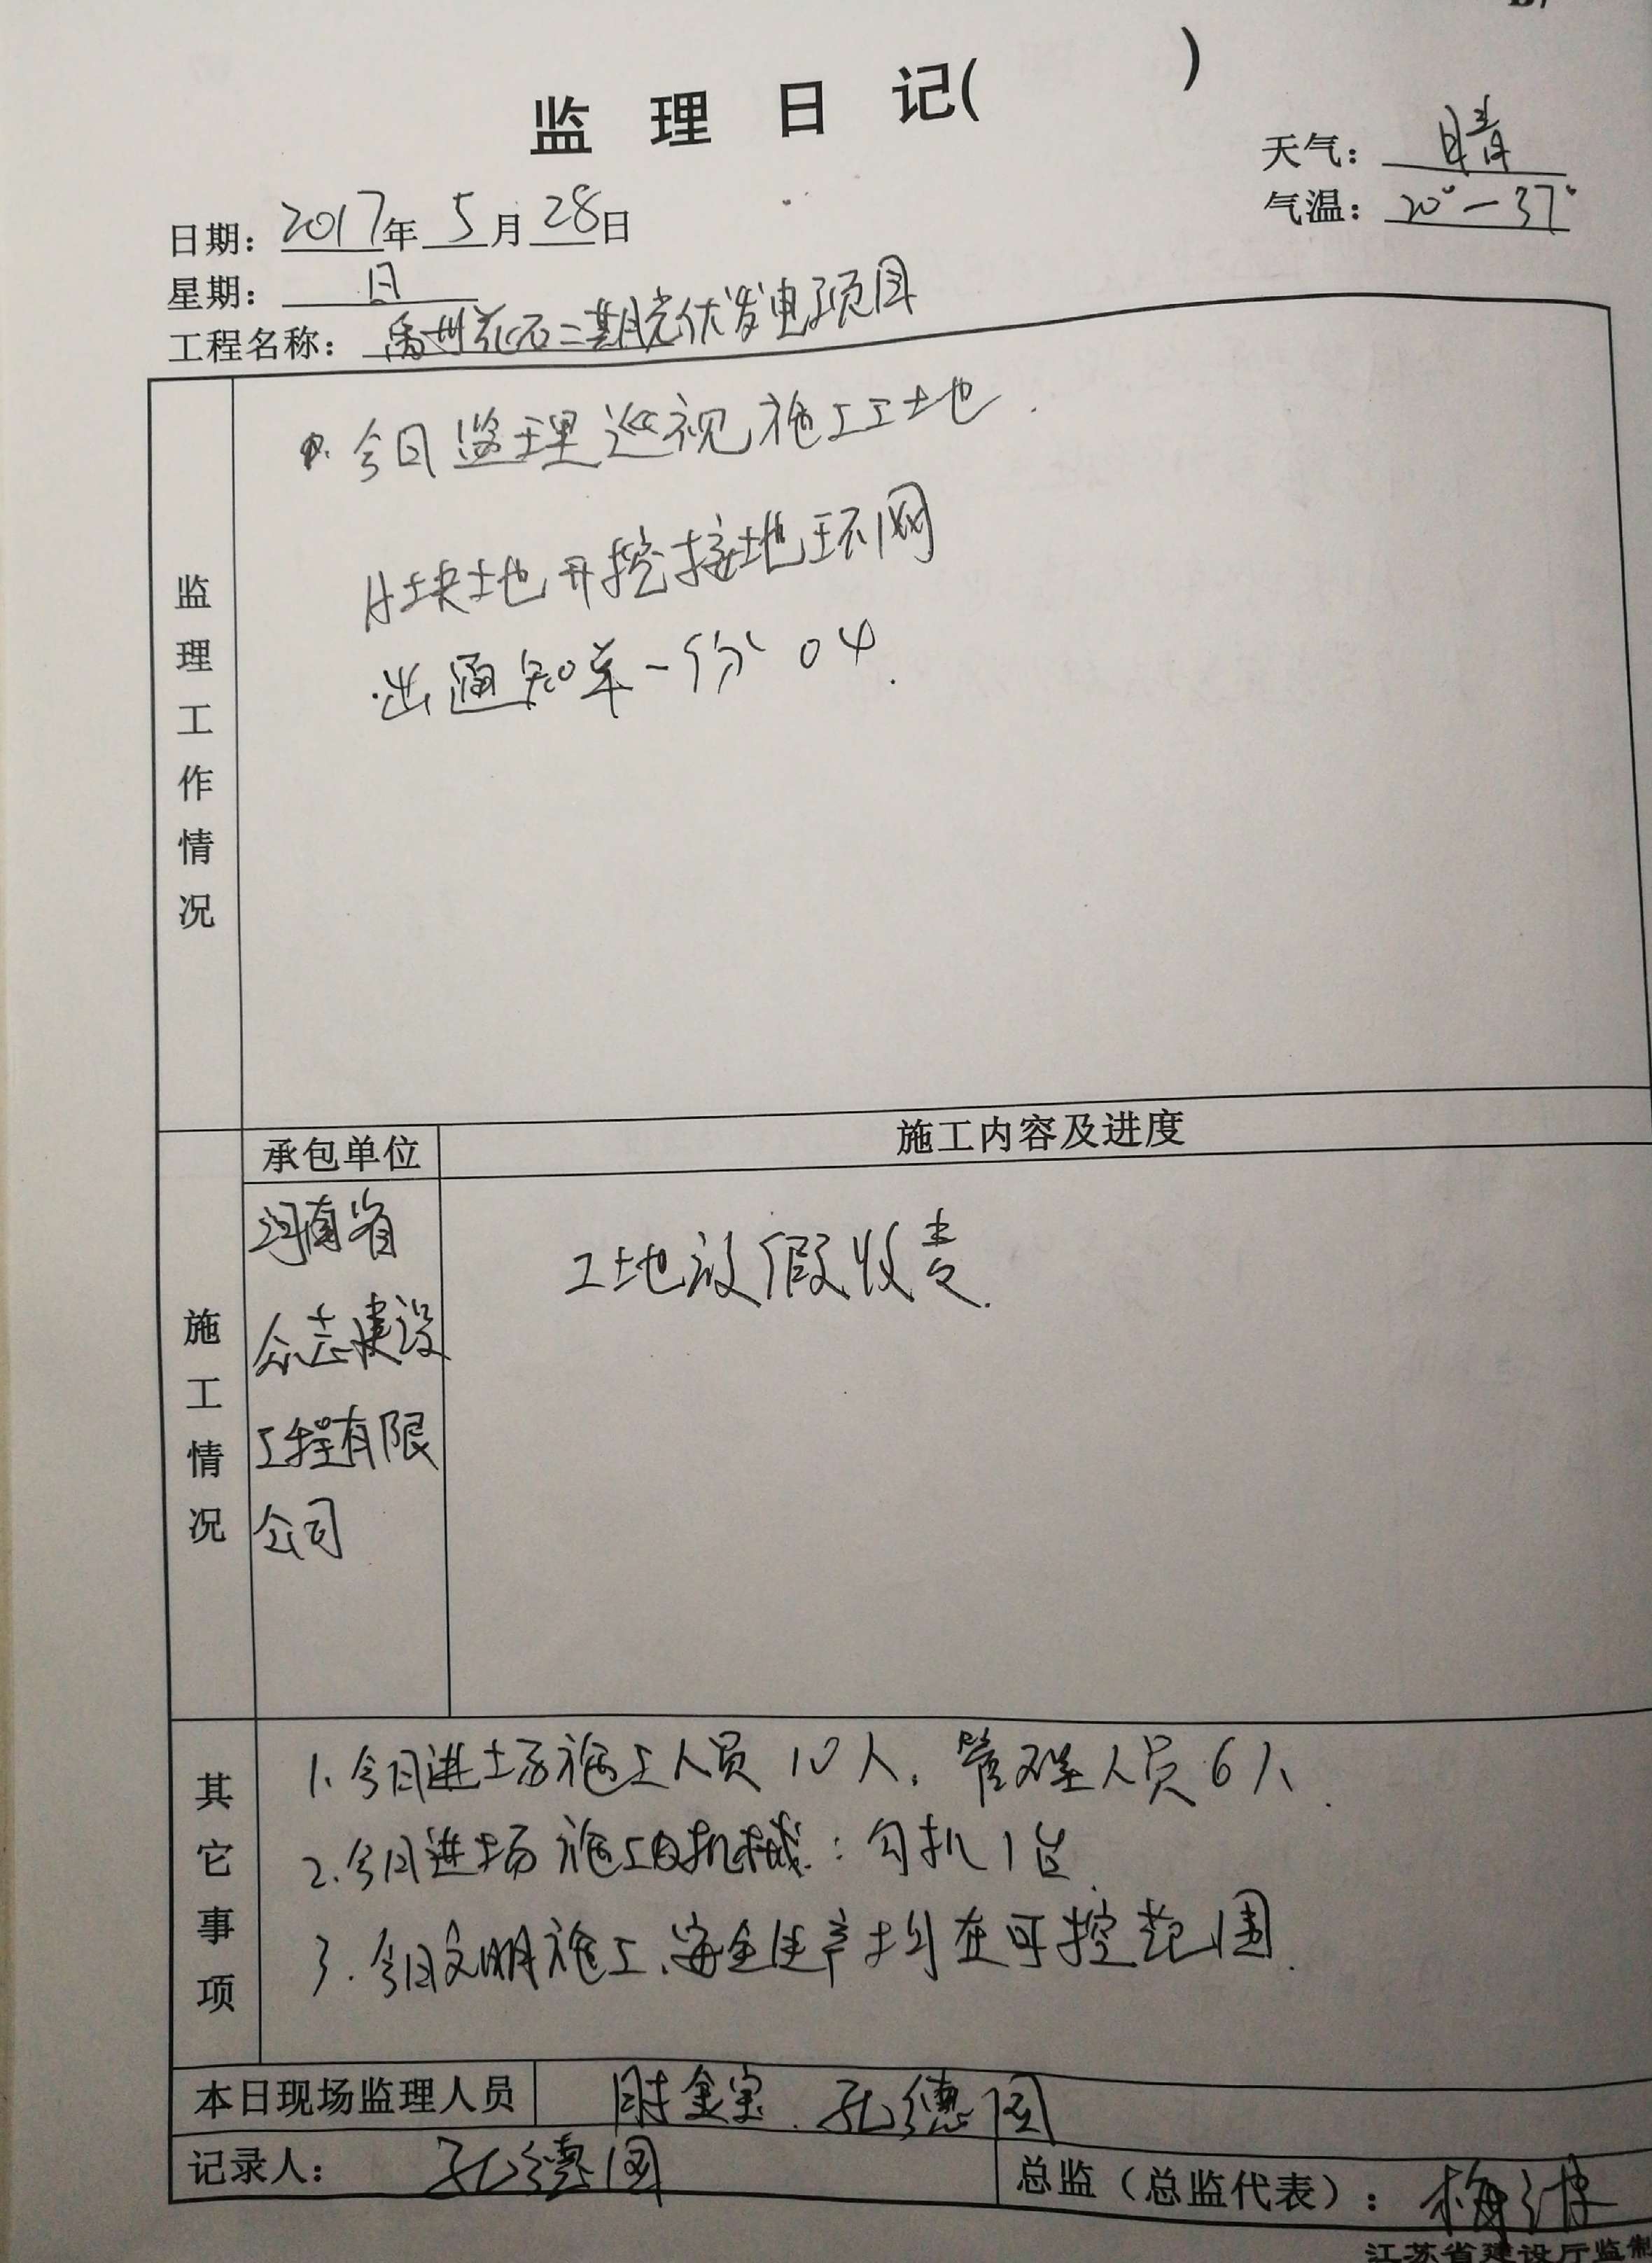 监 理 日 记( )
天气: 晴
气温: 20°-37°
日期: 2017年 5 月 28 日
星期: 日
工程名称: 禹州花石二期光伏发电项目
监理工作情况
今日监理巡视施工工地.
A块地开挖接地环网
出通知单一份 04.
施工情况
承包单位
施工内容及进度
河南省
众志建设
工程有限
公司
工地放假收麦.
其它事项
1. 今日进场施工人员10人, 管理人员6人.
2. 今日进场施工机械: 勾机1台.
3. 今日文明施工、安全生产均在可控范围.
本日现场监理人员 金宝. 孔德国
记录人: 孔德国
总监(总监代表): 梅
江苏省建设厅监制